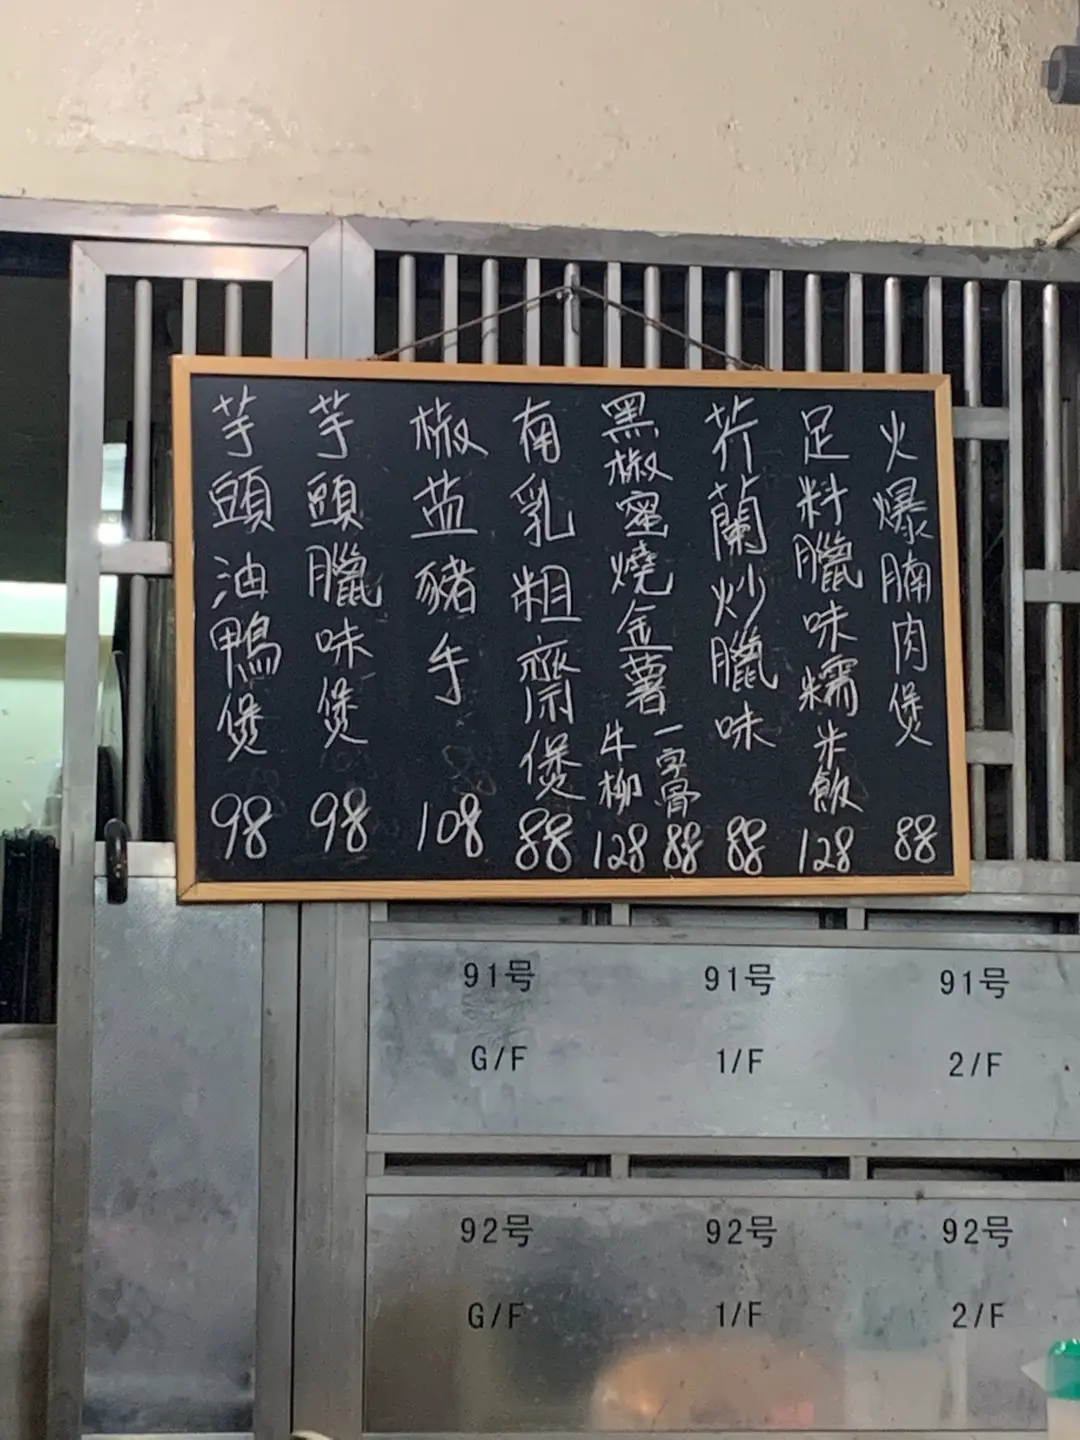 火爆腩肉煲 88
足料臘味糯米飯 128
芥蘭炒臘味 88
黑椒蜜燒金薯 一字骨 88 牛柳 128
南乳粗齋煲 88
椒盐豬手 108
芋頭臘味煲 98
芋頭油鴨煲 98
91号 91号 91号
G/F 1/F 2/F
92号 92号 92号
G/F 1/F 2/F